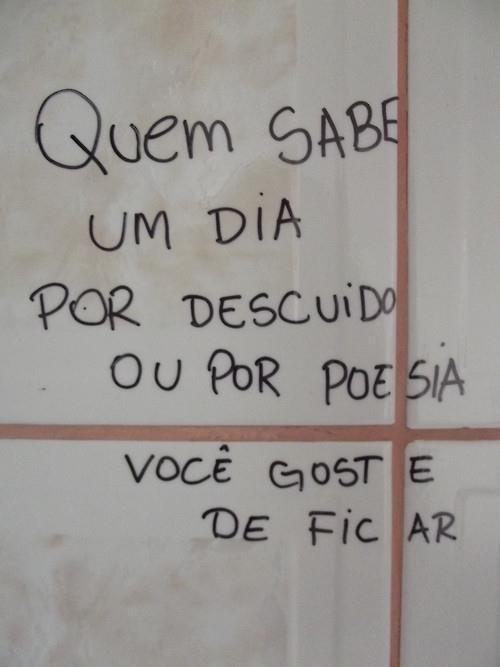 Quem SABE
UM DIA
POR DESCUIDO
OU POR POESIA
VOCÊ GOSTE
DE FICAR